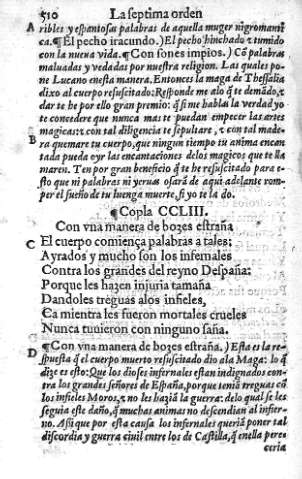 510 La septima orden
A ribles y espantosas palabras de aquella muger nigromanti
ca. ¶ El pecho iracundo.) El pecho hinchado τ tumido
con la nueva vida. ¶ Con sones impios.) Cõ palabras
maluadas y vedadas por nuestra religion. Las quales po-
ne Lucano enesta manera. Entonces la maga de Thessalia
dixo al cuerpo resuscitado: Responde me alo q̃ te demãdo, τ
dar te he por ello gran premio: q̃ si me hablas la verdad yo
te concedere que nunca mas te puedan empecer las artes
magicas: τ con tal diligencia te sepultare, τ con tal made-
B ra quemare tu cuerpo, que ningun tiempo tu anima encan
tada pueda oyr las encantaciones delos magicos que te lla
maren. Ten por gran beneficio q̃ te he resuscitado para e-
sto que ni palabras ni yeruas osarã de aqui adelante rom-
per el sueño de tu luenga muerte, si yo te la do.
¶ Copla CCLIII.
Con vna manera de bozes estraña
C El cuerpo comiença palabras a tales:
Ayrados y mucho son los infernales
Contra los grandes del reyno Despaña:
Porque les hazen injuria tamaña
Dandoles treguas alos infieles,
Ca mientra les fueron mortales crueles
Nunca tuuieron con ninguno saña.
¶ Con vna manera de bozes estraña.) Esta es la re-
D spuesta q̃ el cuerpo muerto resuscitado dio ala Maga: lo q̃
dize es esto: Que los dioses infernales estan indignados con-
tra los grandes señores de España, porque teniã treguas cõ
los infieles Moros, τ no les haziã la guerra: delo qual se les
seguia este daño, q̃ muchas animas no descendian al infier-
no. Assi que por esta causa los infernales queriã poner tal
discordia y guerra ciuil entre los de Castilla, q̃ enella pere-
ceria